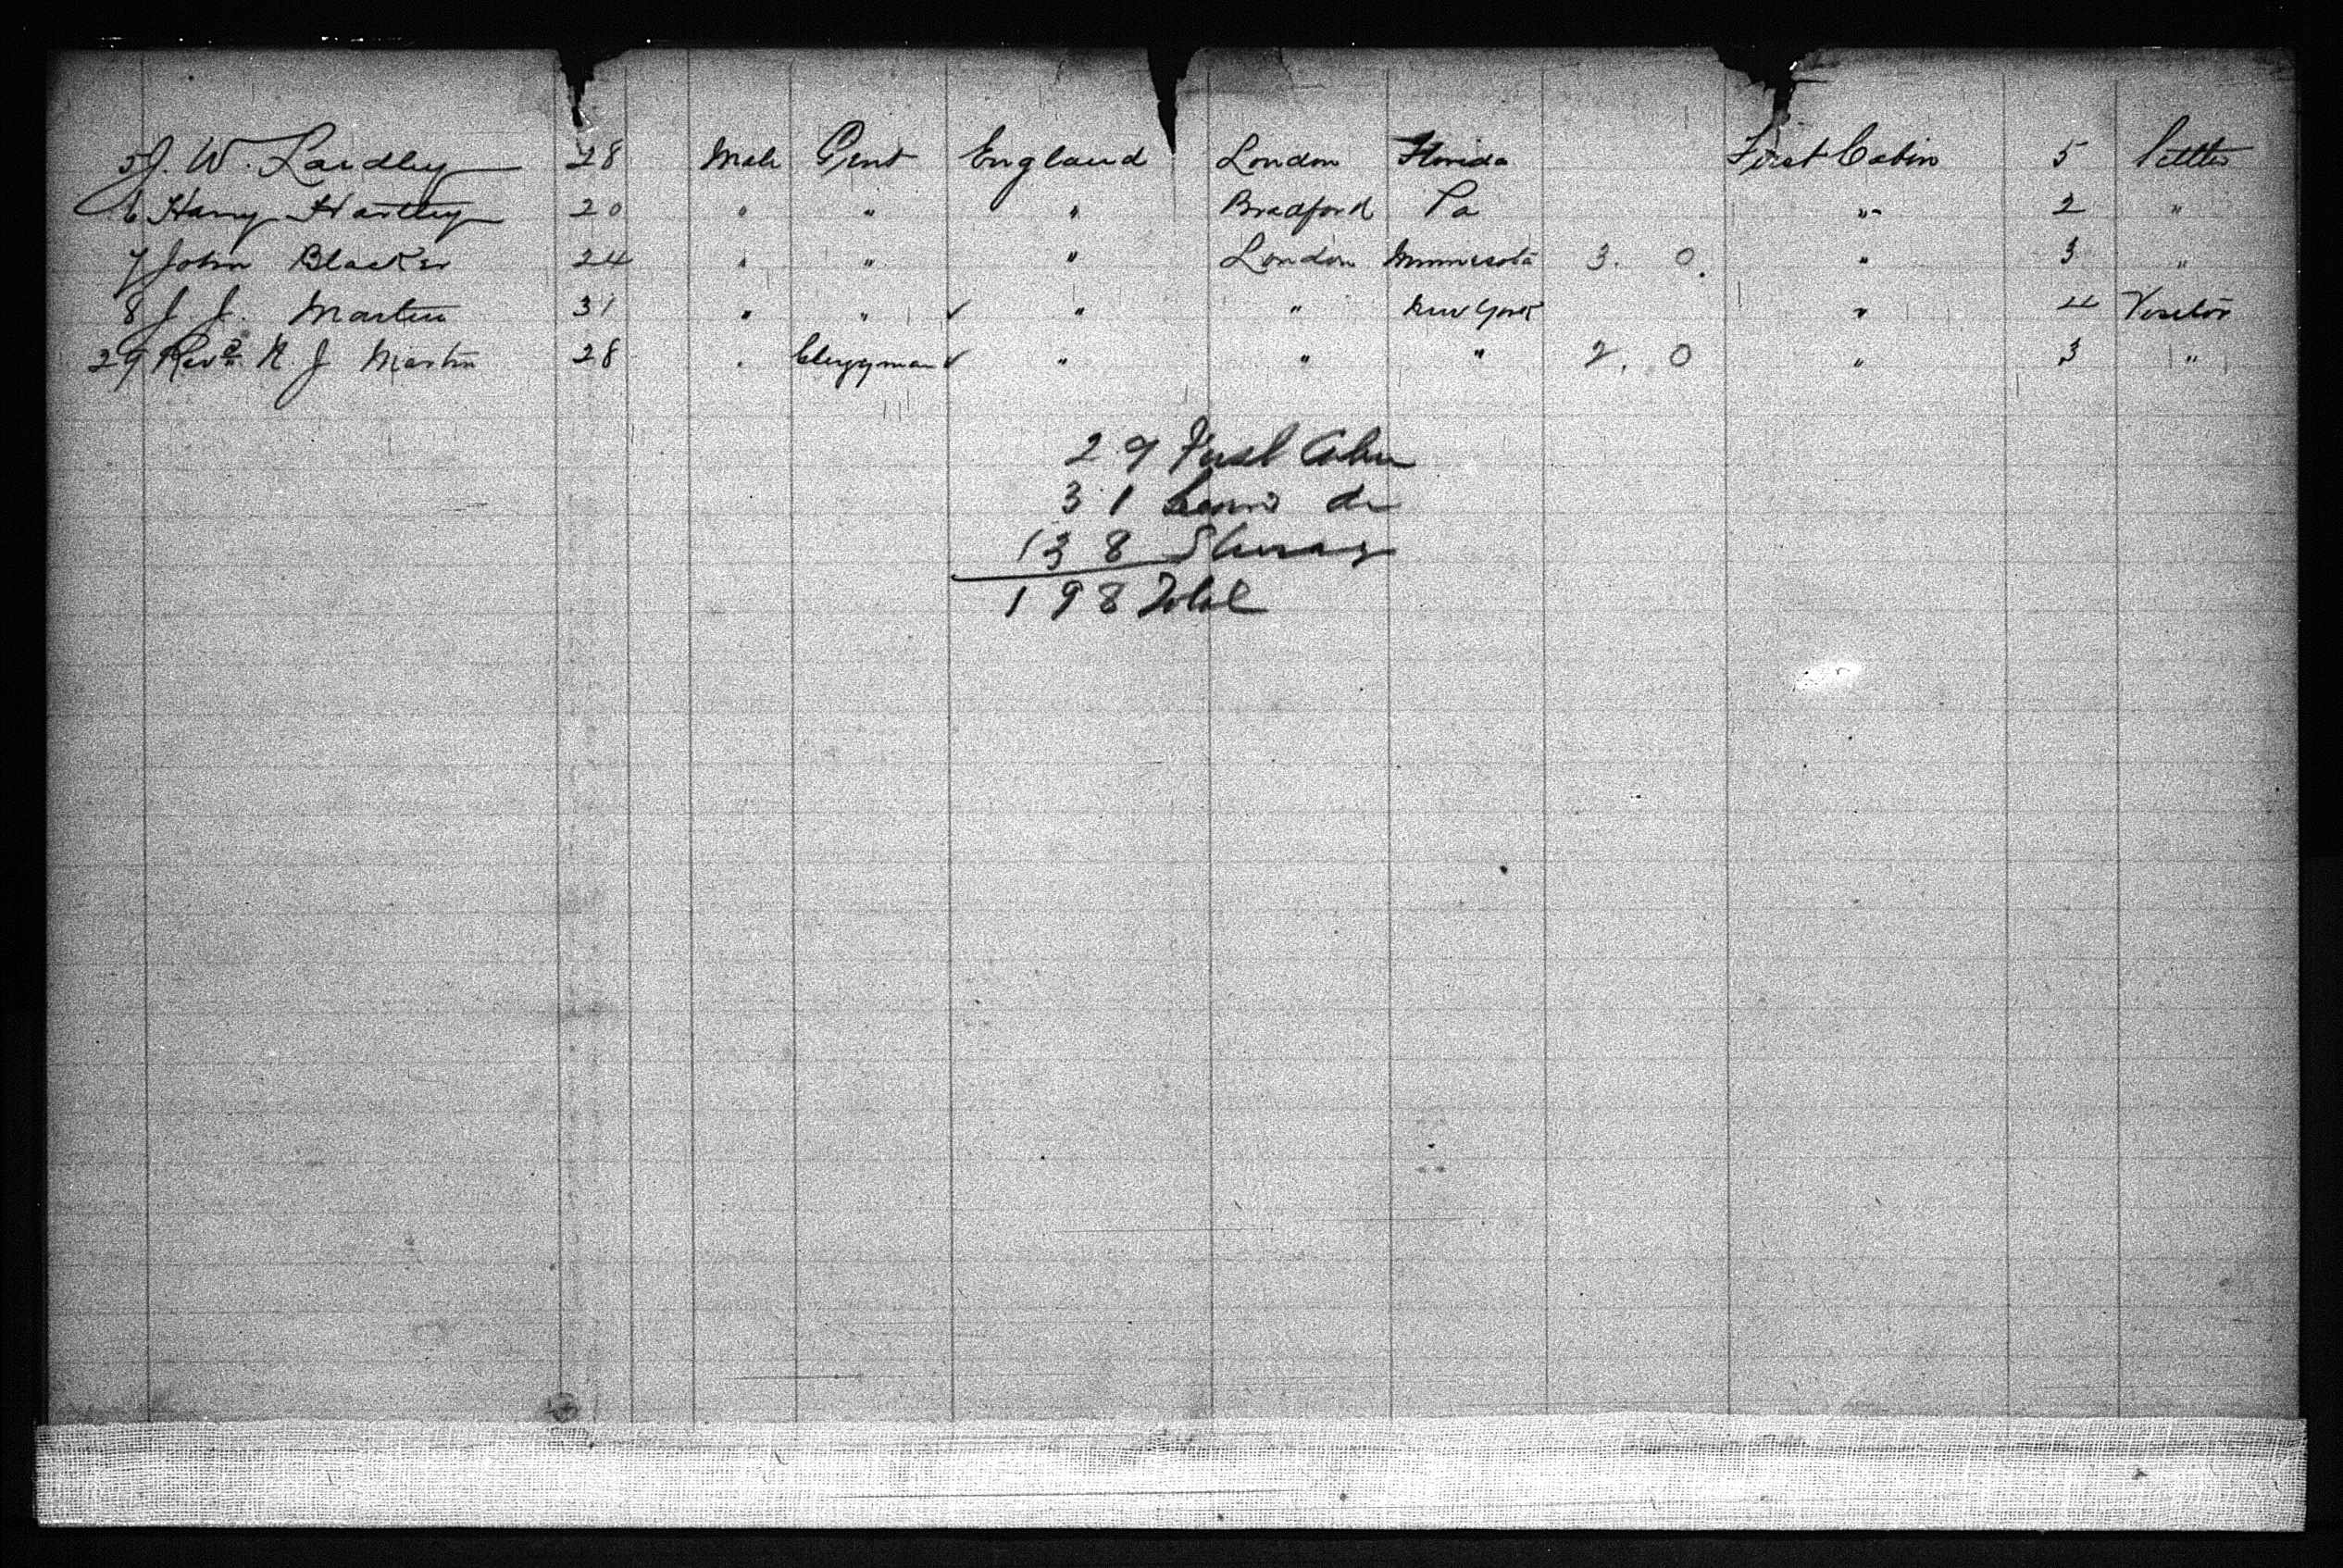 5 J. W. Lardley 28 Male Gent England London Florida First Cabin 5 Settler
6 Harry Hartley 20 " " " Bradford Pa " 2 "
7 John Blacker 24 " " " London Minnesota 3. 0. " 3 "
8 J. J. Martin 31 " " ✓ " " New York " 4 Visitor
29 Revd. N J Martin 28 " Clergyman ✓ " " " 2. 0 " 3 "
29 First Cabin
31 Second do
138 Steerage
198 Total